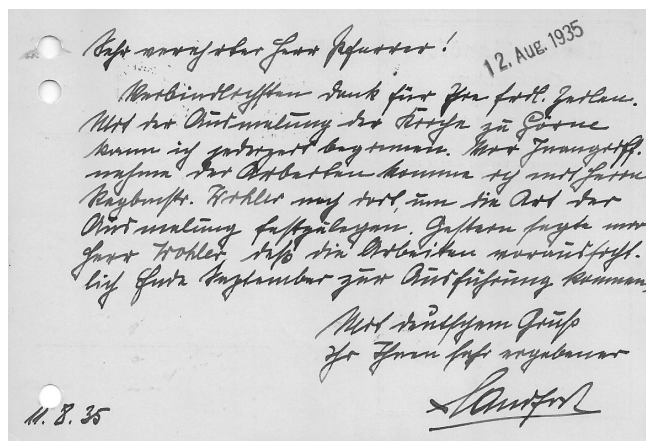 Sehr verehrter Herr Pfarrer!
12. Aug. 1935
Verbindlichsten Dank für Ihre frdl. Zeilen.
Mit der Ausmalung der Kirche zu Görne
kann ich jederzeit beginnen. Vor Inangriff-
nahme der Arbeiten komme ich mit Herrn
Regbmstr. Wohler nach dort, um die Art der
Ausmalung festzulegen. Gestern sagte mir
Herr Wohler, daß die Arbeiten voraussicht-
lich Ende September zur Ausführung kommen.
Mit deutschem Gruß
Ihr Ihnen sehr ergebener
11.8.35